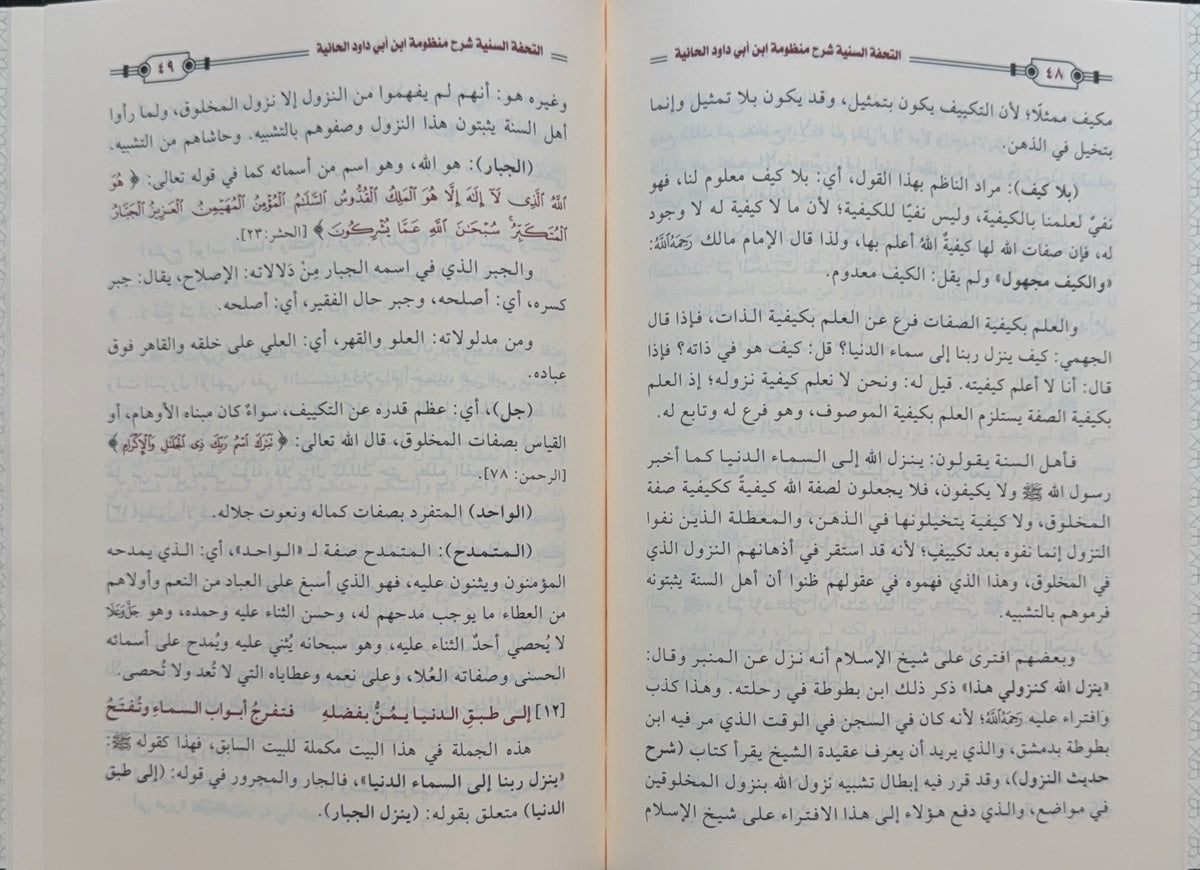 التحفة السنية شرح منظومة ابن أبي داود الحائية
٤٨
مكيف ممثلًا؛ لأن التكييف يكون بتمثيل، وقد يكون بلا تمثيل وإنما
بتخيل في الذهن.
(بلا كيف): مراد الناظم بهذا القول، أي: بلا كيف معلوم لنا، فهو
نفيٌ لعلمنا بالكيفية، وليس نفيًا للكيفية؛ لأن ما لا كيفية له لا وجود
له، فإن صفات الله لها كيفيةٌ اللهُ أعلم بها، ولذا قال الإمام مالك رَحِمَهُ اللَّهُ:
«والكيف مجهول» ولم يقل: الكيف معدوم.
والعلم بكيفية الصفات فرع عن العلم بكيفية الذات، فإذا قال
الجهمي: كيف ينزل ربنا إلى سماء الدنيا؟ قل: كيف هو في ذاته؟ فإذا
قال: أنا لا أعلم كيفيته. قيل له: ونحن لا نعلم كيفية نزوله؛ إذ العلم
بكيفية الصفة يستلزم العلم بكيفية الموصوف، وهو فرع له وتابع له.
فأهل السنة يقولون: ينزل الله إلى السماء الدنيا كما أخبر
رسول الله ﷺ ولا يكيفون، فلا يجعلون لصفة الله كيفيةً ككيفية صفة
المخلوق، ولا كيفية يتخيلونها في الذهن، والمعطلة الذين نفوا
النزول إنما نفوه بعد تكييفٍ؛ لأنه قد استقر في أذهانهم النزول الذي
في المخلوق، وهذا الذي فهموه في عقولهم ظنوا أن أهل السنة يثبتونه
فرموهم بالتشبيه.
وبعضهم افترى على شيخ الإسلام أنه نزل عن المنبر وقال:
«ينزل الله كنزولي هذا» ذكر ذلك ابن بطوطة في رحلته. وهذا كذب
وافتراء عليه رَحِمَهُ اللَّهُ؛ لأنه كان في السجن في الوقت الذي مر فيه ابن
بطوطة بدمشق، والذي يريد أن يعرف عقيدة الشيخ يقرأ كتاب (شرح
حديث النزول)، وقد قرر فيه إبطال تشبيه نزول الله بنزول المخلوقين
في مواضع، والذي دفع هؤلاء إلى هذا الافتراء على شيخ الإسلام
التحفة السنية شرح منظومة ابن أبي داود الحائية
٤٩
وغيره هو: أنهم لم يفهموا من النزول إلا نزول المخلوق، ولما رأوا
أهل السنة يثبتون هذا النزول وصفوهم بالتشبيه. وحاشاهم من التشبيه.
(الجبار): هو الله، وهو اسم من أسمائه كما في قوله تعالى: ﴿هُوَ
ٱللَّهُ ٱلَّذِى لَآ إِلَٰهَ إِلَّا هُوَ ٱلْمَلِكُ ٱلْقُدُّوسُ ٱلسَّلَٰمُ ٱلْمُؤْمِنُ ٱلْمُهَيْمِنُ ٱلْعَزِيزُ ٱلْجَبَّارُ
ٱلْمُتَكَبِّرُ سُبْحَٰنَ ٱللَّهِ عَمَّا يُشْرِكُونَ﴾ [الحشر:٢٣].
والجبر الذي في اسمه الجبار مِنْ دَلالاته: الإصلاح، يقال: جبر
كسره، أي: أصلحه، وجبر حال الفقير، أي: أصلحه.
ومن مدلولاته: العلو والقهر، أي: العلي على خلقه والقاهر فوق
عباده.
(جل)، أي: عظم قدره عن التكييف، سواءٌ كان مبناه الأوهام، أو
القياس بصفات المخلوق، قال الله تعالى: ﴿تَبَٰرَكَ ٱسْمُ رَبِّكَ ذِى ٱلْجَلَٰلِ وَٱلْإِكْرَامِ﴾
[الرحمن: ٧٨].
(الواحد) المتفرد بصفات كماله ونعوت جلاله.
(المتمدح): المتمدح صفة لـ «الواحد»، أي: الذي يمدحه
المؤمنون ويثنون عليه، فهو الذي أسبغ على العباد من النعم وأولاهم
من العطاء ما يوجب مدحهم له، وحسن الثناء عليه وحمده، وهو جَلَّ وَعَلَا
لا يُحصي أحدٌ الثناء عليه، وهو سبحانه يُثني عليه ويُمدح على أسمائه
الحسنى وصفاته العُلا، وعلى نعمه وعطاياه التي لا تُعد ولا تُحصى.
[١٢] إلى طبقِ الدنيا يمنُّ بفضلهِ فتفرجُ أبوابُ السماءِ وتُفتَحُ
هذه الجملة في هذا البيت مكملة للبيت السابق، فهذا كقوله ﷺ:
«ينزل ربنا إلى السماء الدنيا»، فالجار والمجرور في قوله: (إلى طبق
الدنيا) متعلق بقوله: (ينزل الجبار).